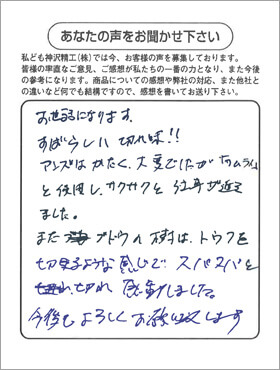 あなたの声をお聞かせ下さい
私ども神沢精工(株)では今、お客様の声を募集しております。
皆様の率直なご意見、ご感想が私たちの一番の力となり、また今後
の参考になります。商品についての感想や弊社の対応、また他社と
の違いなど何でも結構ですので、感想を書いてお送り下さい。
お世話になります。
すばらしい切れ味!!
アンズはかたく、大変でしたがカムライ
を使用し、サクサクと 作業が進み
ました。
また ブドウの樹は、トウフを
切るような感じで スパスパと
切れ 感動しました。
今後もよろしくお願い致します